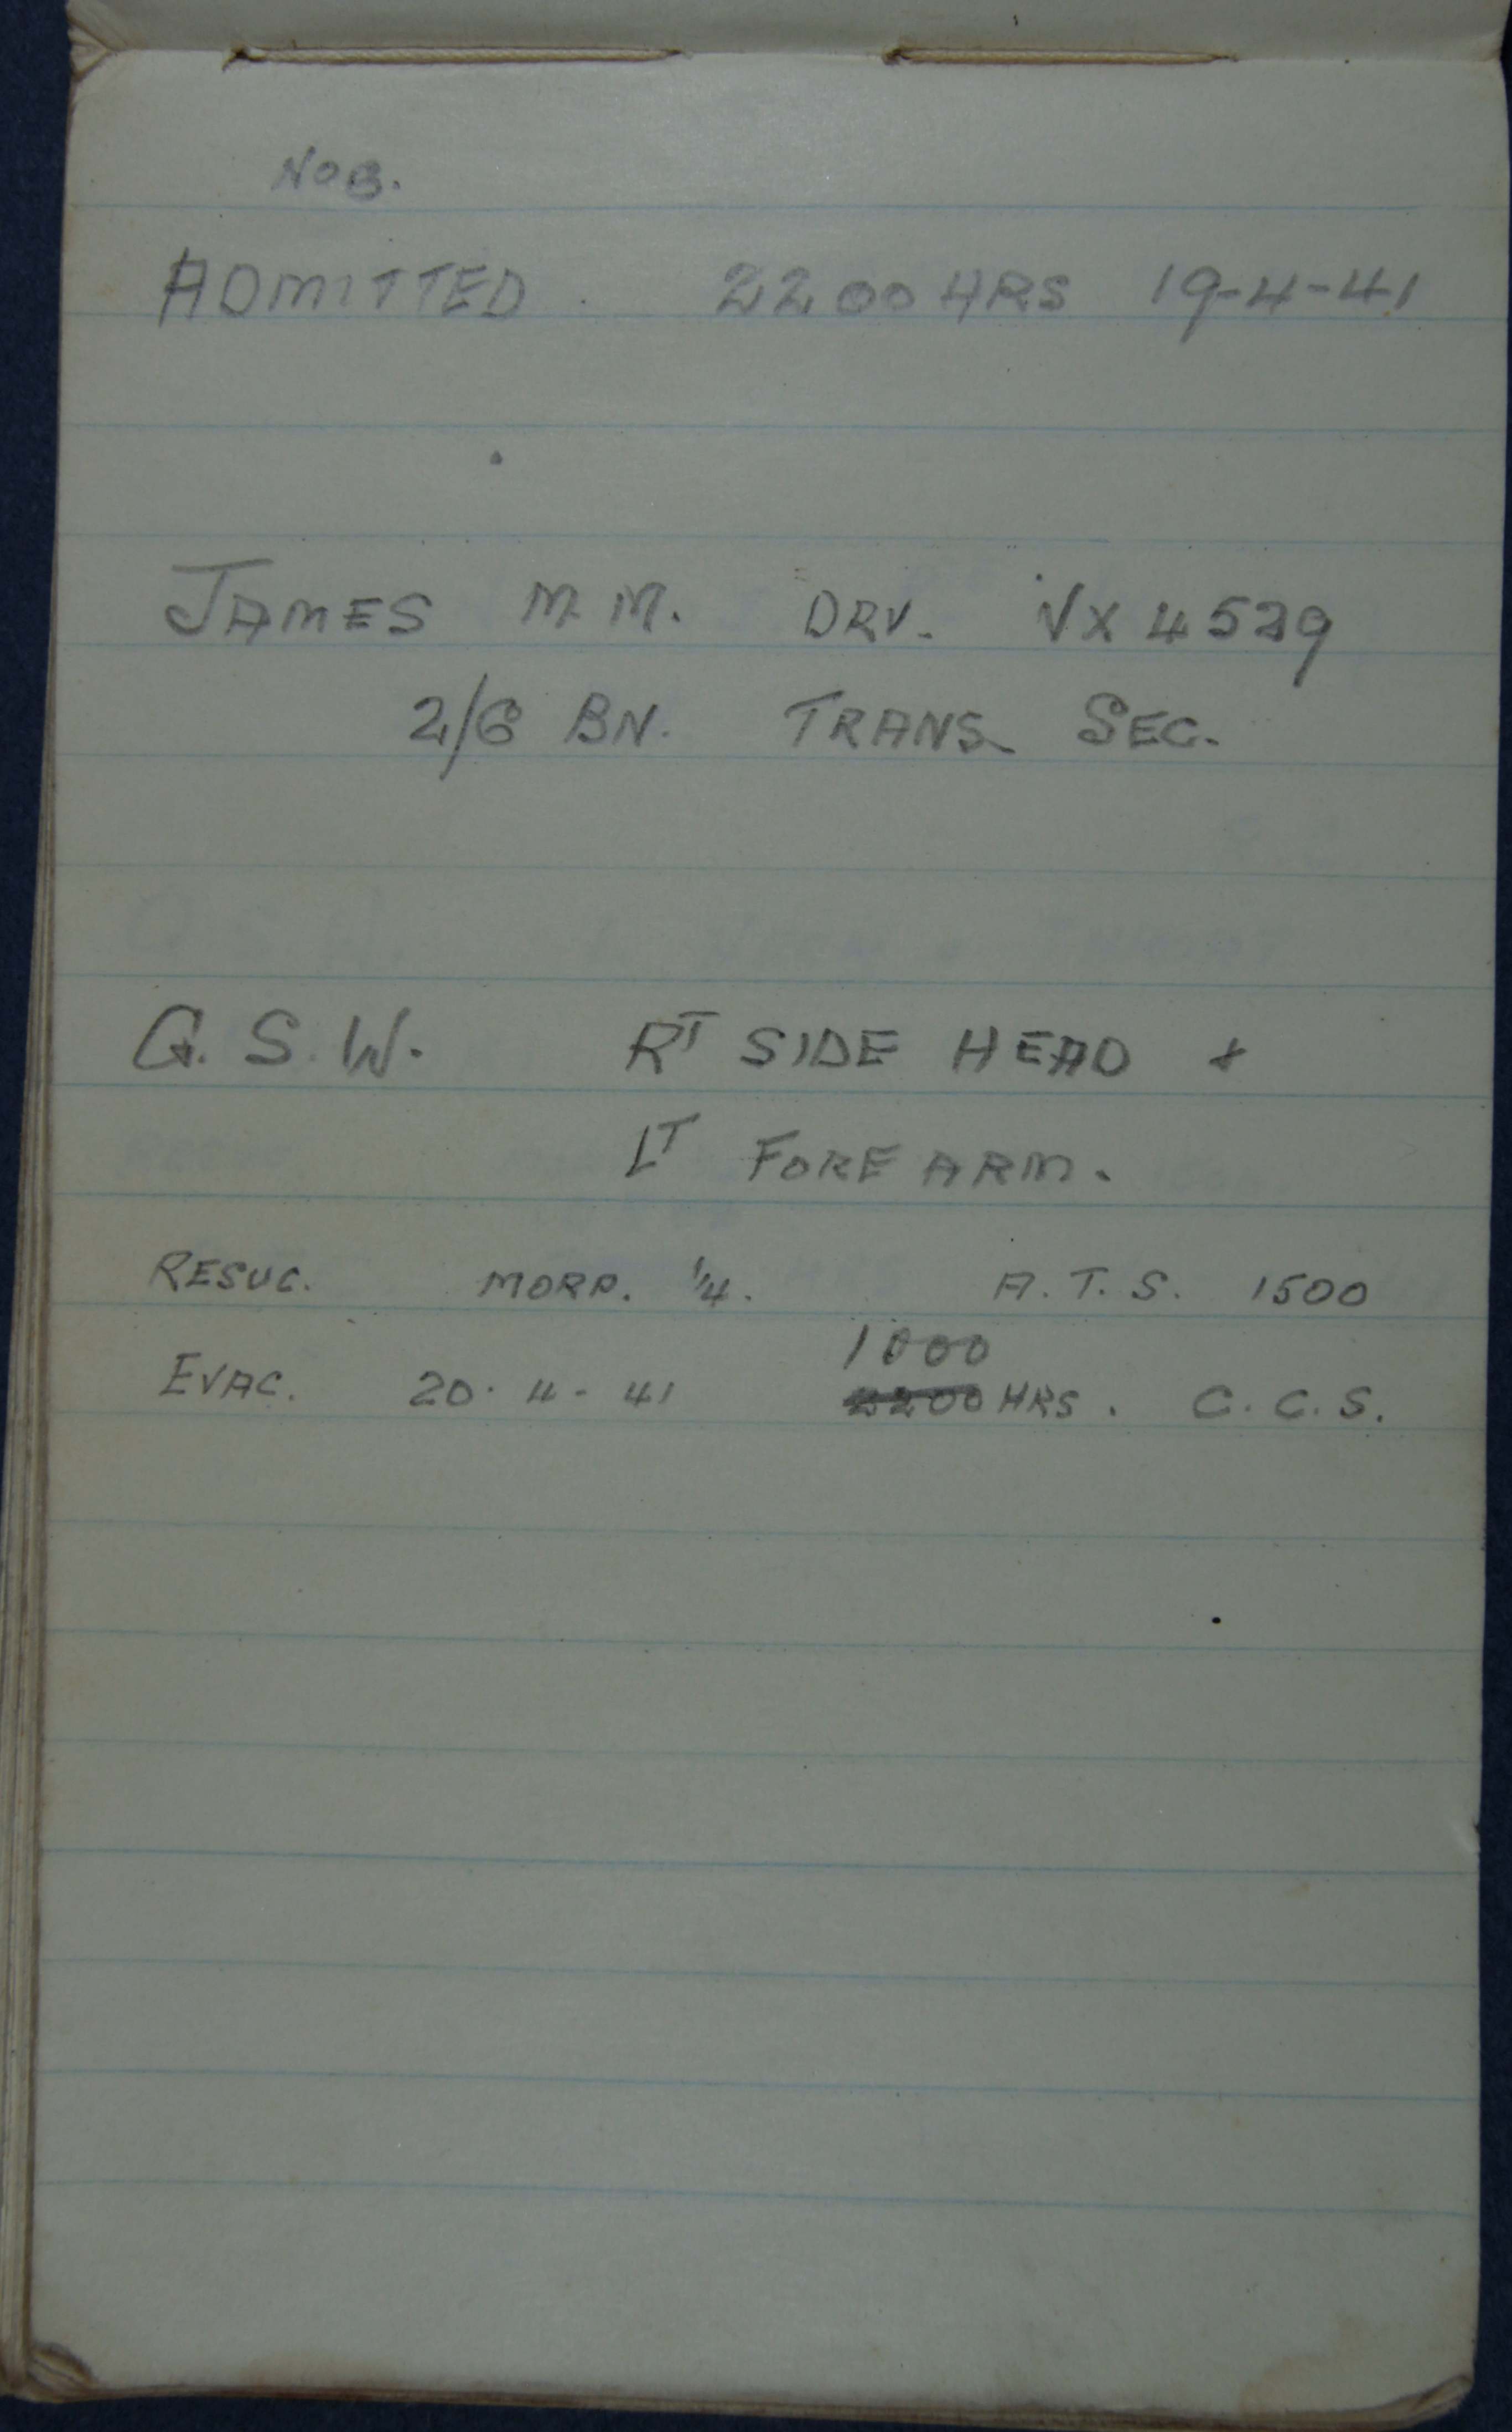 No 8.
ADMITTED. 2200 HRS 19-4-41
JAMES M.M. DRV. VX 4529
2/6 BN. TRANS. SEC.
G. S. W. RT SIDE HEAD +
LT FORE ARM.
RESUC. MORP. 1/4. A.T.S. 1500
1000
EVAC. 20. 4. 41 2200 HRS. C.C.S.